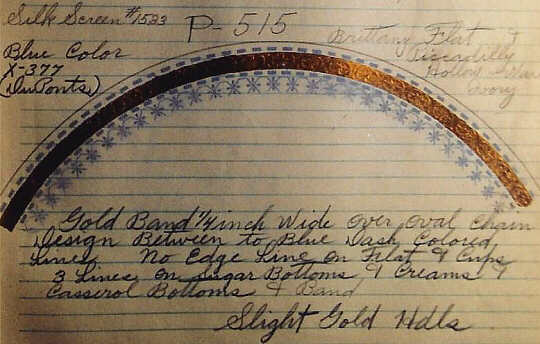 Silk Screen #1533
P-515
Brittany Flat &
Piccadilly
Hollow Ware
Ivory
Blue Color
X-377
(DuPonts)
Gold Band 1/4 inch Wide Over Oval Chain
Design Between to Blue Dash Colored
Lines. No Edge Line on Flat & Cups
3 Lines on Sugar Bottoms & Creams &
Casserol Bottoms & Band
Slight Gold Hdls